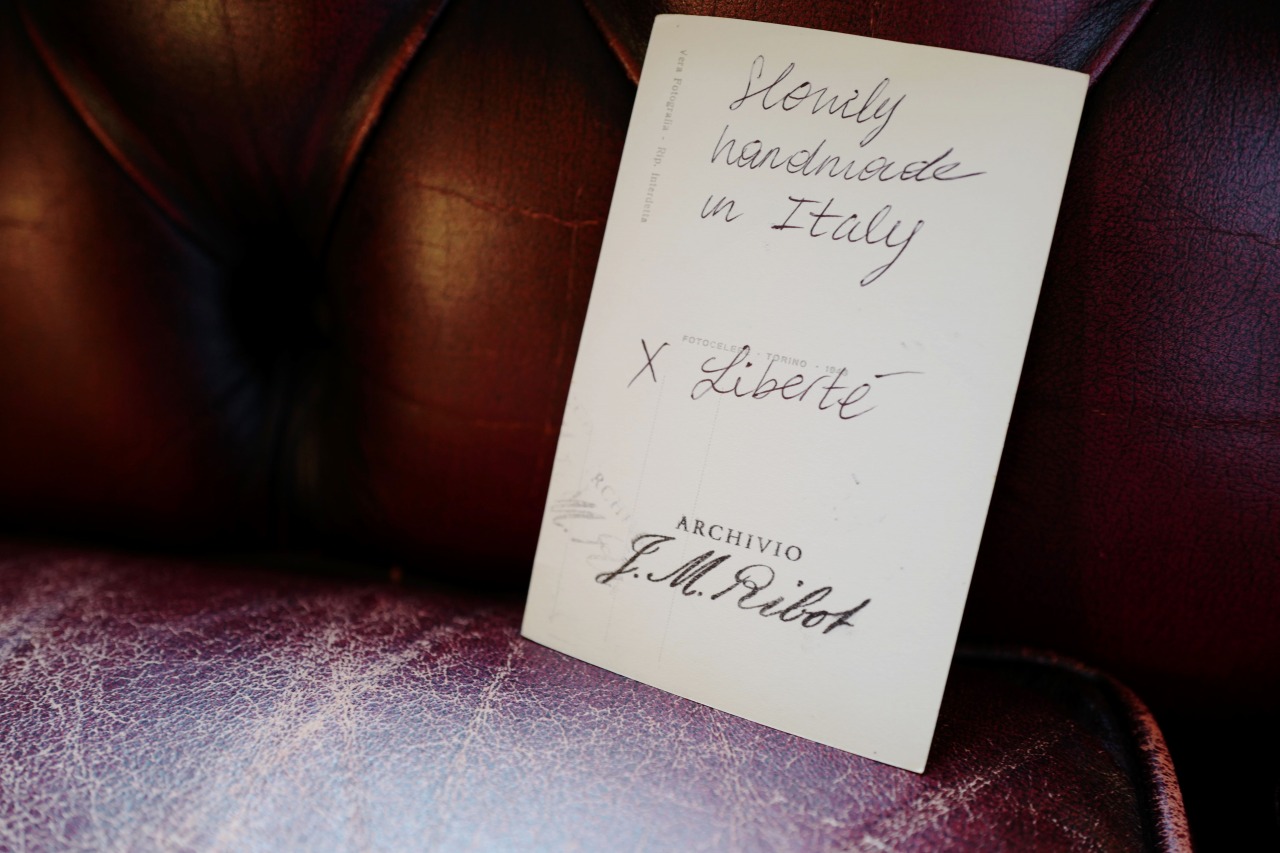 Slowly
handmade
in Italy
Vera Fotografia - Rip. Interdetta
TORINO
X Liberté
ARCHIVIO
J. M. Ribot